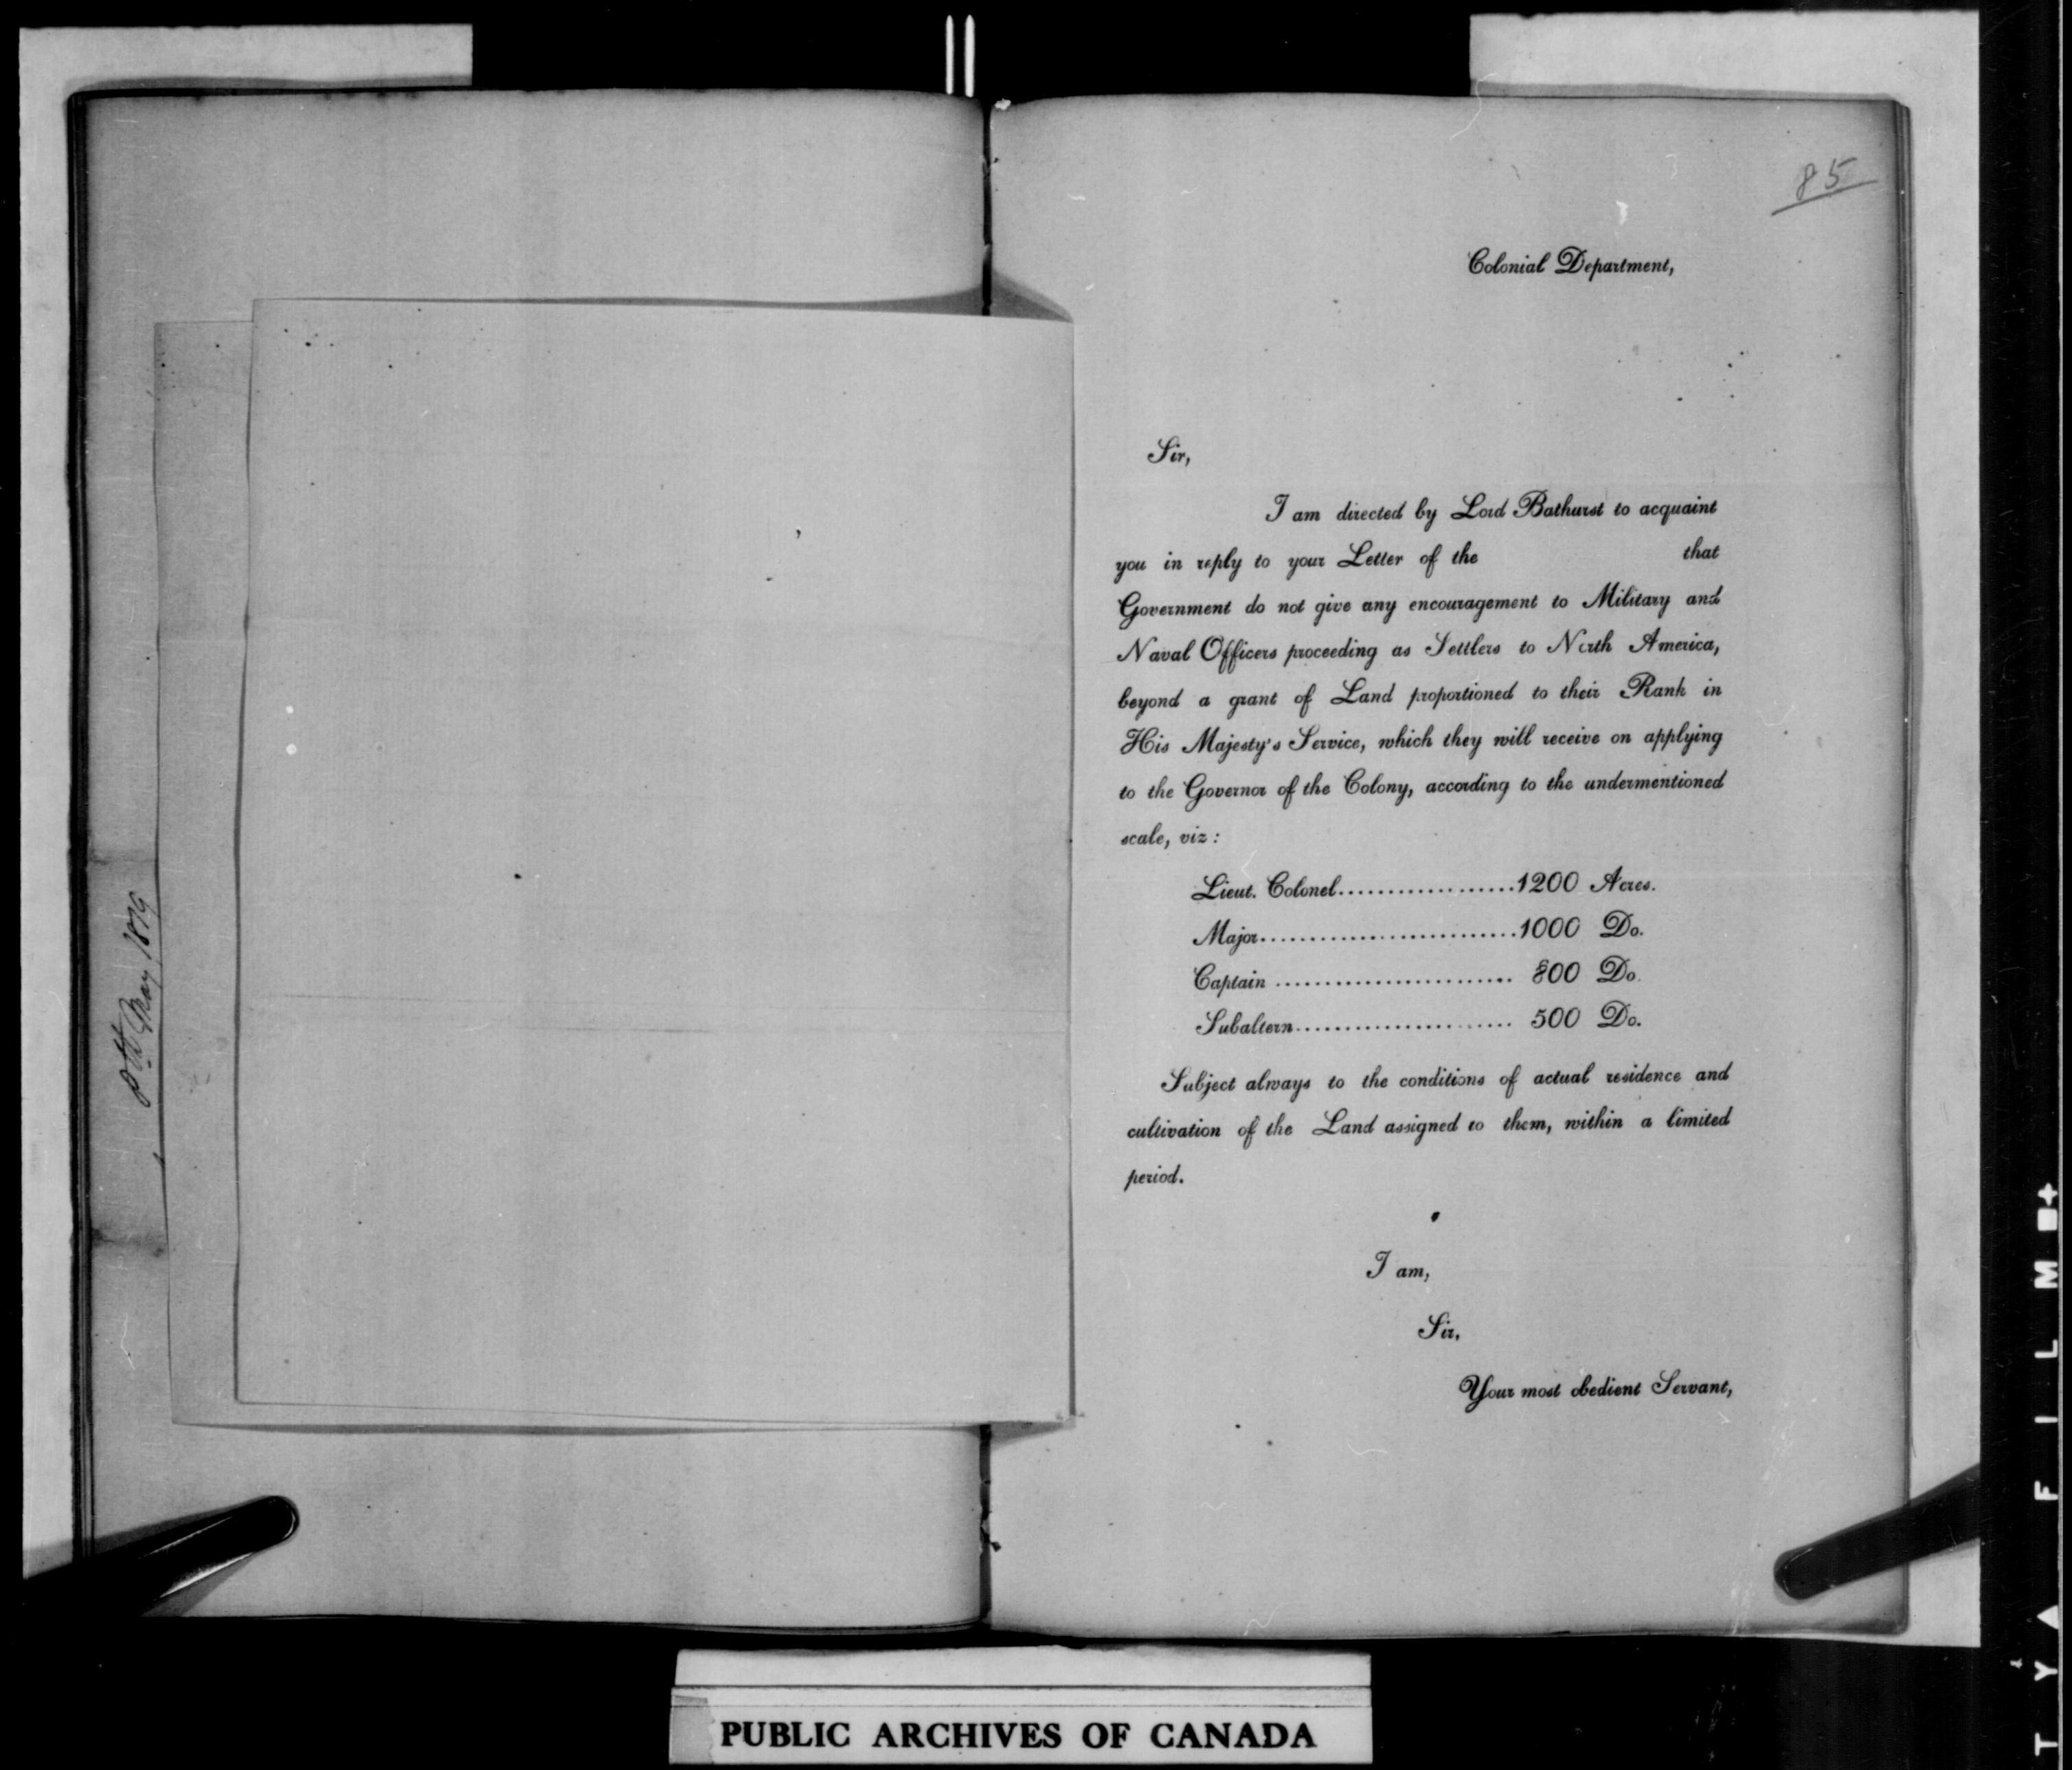 8th May 1819
85
Colonial Department,
Sir,
I am directed by Lord Bathurst to acquaint
you in reply to your Letter of the that
Government do not give any encouragement to Military and
Naval Officers proceeding as Settlers to North America,
beyond a grant of Land proportioned to their Rank in
His Majesty's Service, which they will receive on applying
to the Governor of the Colony, according to the undermentioned
scale, viz:
Lieut. Colonel..................1200 Acres.
Major..........................1000 Do.
Captain ........................ 800 Do.
Subaltern...................... 500 Do.
Subject always to the conditions of actual residence and
cultivation of the Land assigned to them, within a limited
period.
I am,
Sir,
Your most obedient Servant,
PUBLIC ARCHIVES OF CANADA
T Y A F I L M